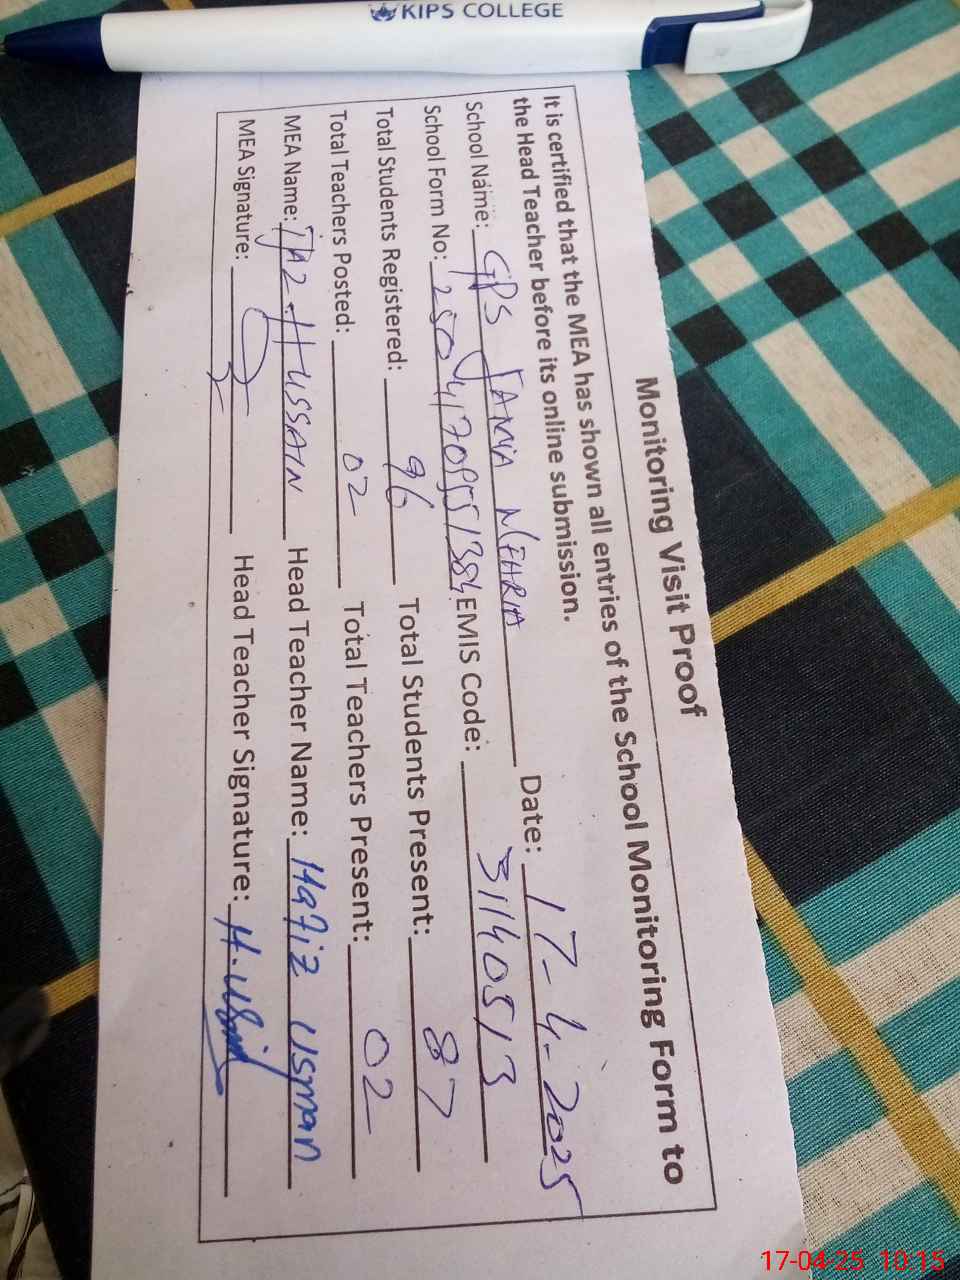 KIPS COLLEGE
Monitoring Visit Proof
It is certified that the MEA has shown all entries of the School Monitoring Form to
the Head Teacher before its online submission.
School Name: GPS JAMIA MEHRIA Date: 17-4-2025
School Form No: EMIS Code: 31140513
Total Students Registered: 96 Total Students Present: 87
Total Teachers Posted: 02 Total Teachers Present: 02
MEA Name: IJAZ HUSSAIN Head Teacher Name: Hafiz Usman
MEA Signature: Head Teacher Signature: H.Usman
17-04-25 10:15